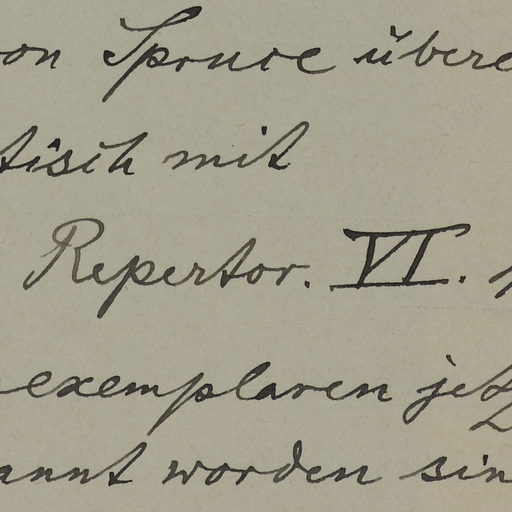 on Spruce übere
tisch mit
Repertor. VI.
exemplaren jetz
annt worden sin